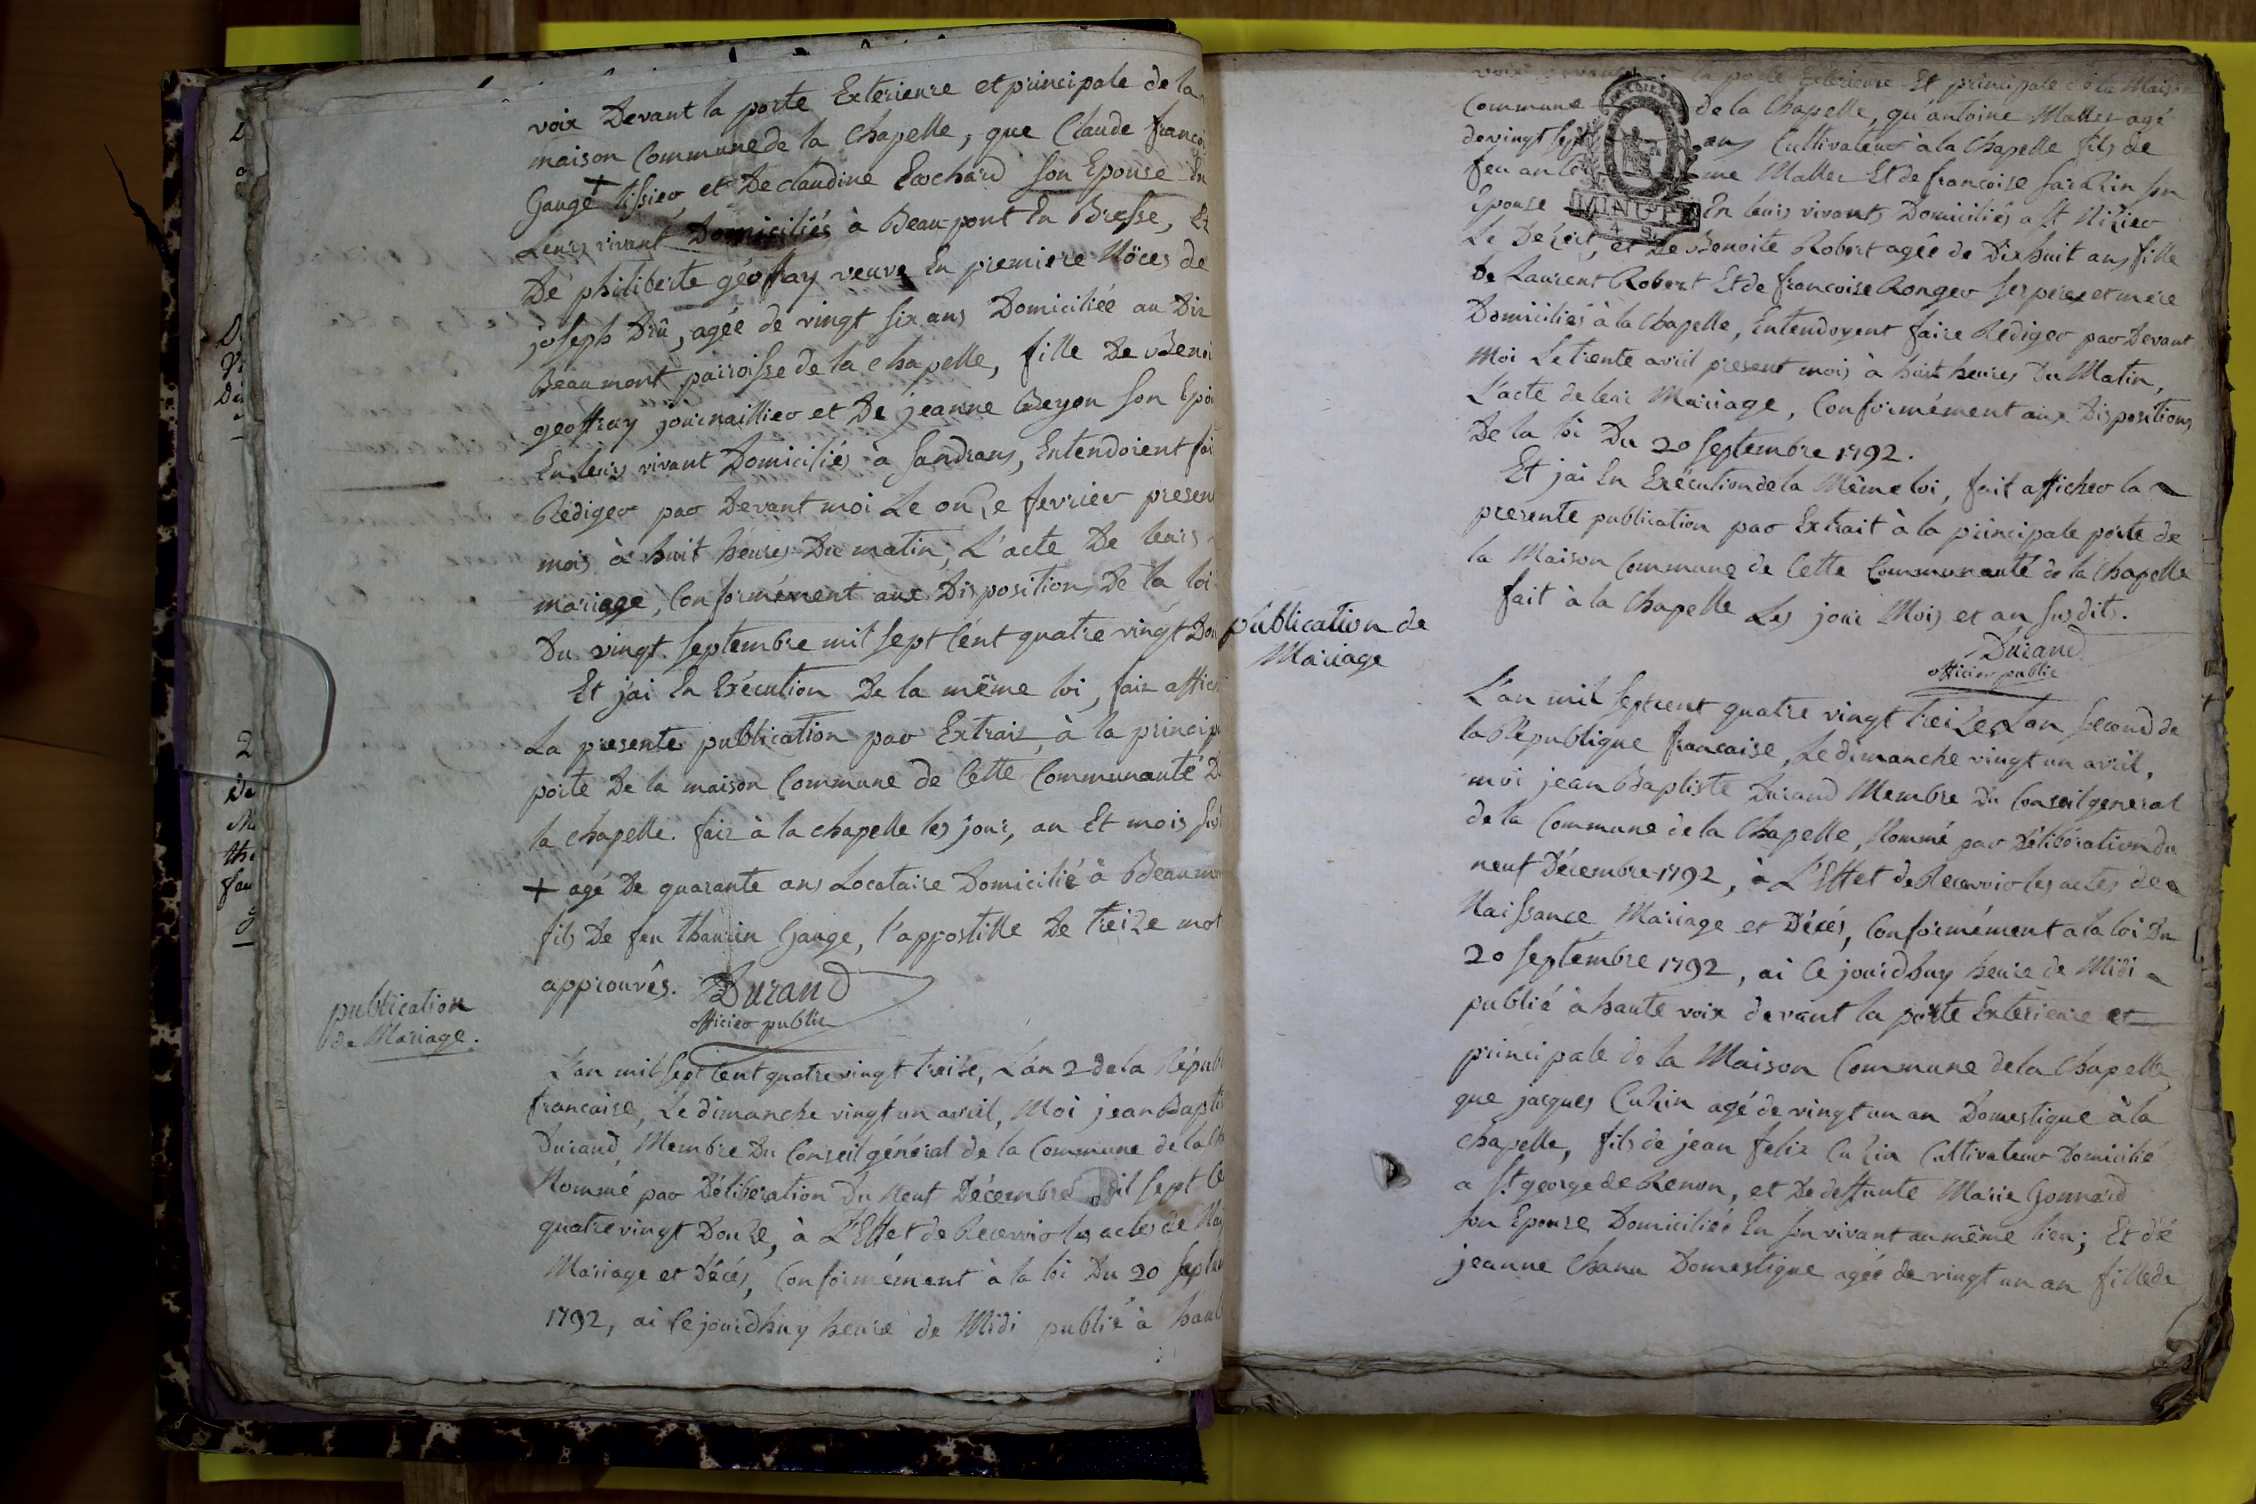 voix Devant la porte Exterieure et principale de la
maison Commune de la Chapelle, que Claude françoi
Gauge + tissier et De claudine Ecochard son Epouse En
Leurs vivant Domiciliés à Beaupont En Bresse, Et
De philiberte géoffray veuve En premiere Nôces de
joseph Drû, agée de vingt six ans Domiciliée au Dit
Beaumont parroisse de la chapelle, fille De Benoi
geoffray journaillier et De jeanne Beyon son Epou
En leurs vivant Domiciliés à Sandrans, Entendoient fai
Rédiger par Devant moi Le onze fevrier present
mois à huit heures Du matin, L'acte De leurs
mariage, Conformément aux Dispositions De la loi
Du vingt septembre mil sept Cent quatre vingt Dou
Et j'ai En Exécution De la même loi, fait affich
La presente publication par Extrait, à la princip
porte De la maison Commune de Cette Communauté D
la chapelle. fait à la chapelle les jour, an Et mois sus
+ agé De quarante ans Locataire Domicilié à Beaumon
fils De feu thaurin Gauge, l'appostille De treize mot
approuvés. Durand
officier public
publication
de Mariage.
L'an mil sept Cent quatre vingt treize, L'an 2 de la Républi
francaise, Le dimanche vingt un avril, Moi jean Baptis
Durand, Membre Du Conseil général de la Commune de la Ch
Nommé par Délibération Du Neuf Décembre mil sept Ce
quatre vingt Douze, à L'Effet de Recevoir les actes de Nai
Mariage et Décés, Conformément à la loi Du 20 septem
1792, ai Cejourdhuy heure de Midi publié à haut
voix devant la porte Exterieure Et principale de la Maison
Commune de la Chapelle, qu'antoine Maller agé
de vingt sept ans Cultivateur à la Chapelle fils de
feu antoine Maller Et de francoise jardin son
Epouse En leurs vivants Domiciliés a St Nizier
Le Dezert, et De Benoite Robert agée de Dixhuit ans fille
De Laurent Robert Et de francoise Ronger ses pere et mere
Domiciliés à la Chapelle, Entendoyent faire Rédiger par Devant
Moi Le trente avril present mois à huit heures Du Matin,
L'acte de leur Mariage, Conformément aux Dispositions
De la loi Du 20 septembre 1792.
Et jai En Exécution de la Même loi, fait afficher la
presente publication par Extrait à la principale porte de
la Maison Commune de Cette Communauté de la Chapelle
fait à la Chapelle Les jour Mois et an susdits.
Durand
officier public
MINUTE
4 S.
publication de
Mariage
L'an mil septcent quatre vingt treize L'an second de
la République francaise, Le dimanche vingt un avril,
moi jean Baptiste Durand Membre Du Conseil general
de la Commune de la Chapelle, Nommé par Délibération du
neuf Décembre 1792, à L'Effet de Recevoir les actes de
Naissance Mariage et Décés, Conformément a la loi Du
20 septembre 1792, ai Ce jourdhuy heure de Midi
publié à haute voix devant la porte Exterieure et
principale de la Maison Commune de la Chapelle,
que jacques Cuzin agé de vingt un an Domestique à la
Chapelle, fils de jean felix Cuzin Cultivateur Domicilié
a St george de Renon, et De deffunte Marie Gonnard
son Epouse Domiciliée En son vivant au même lieu; Et dé
jeanne Chanu Domestique agée de vingt un an fille de